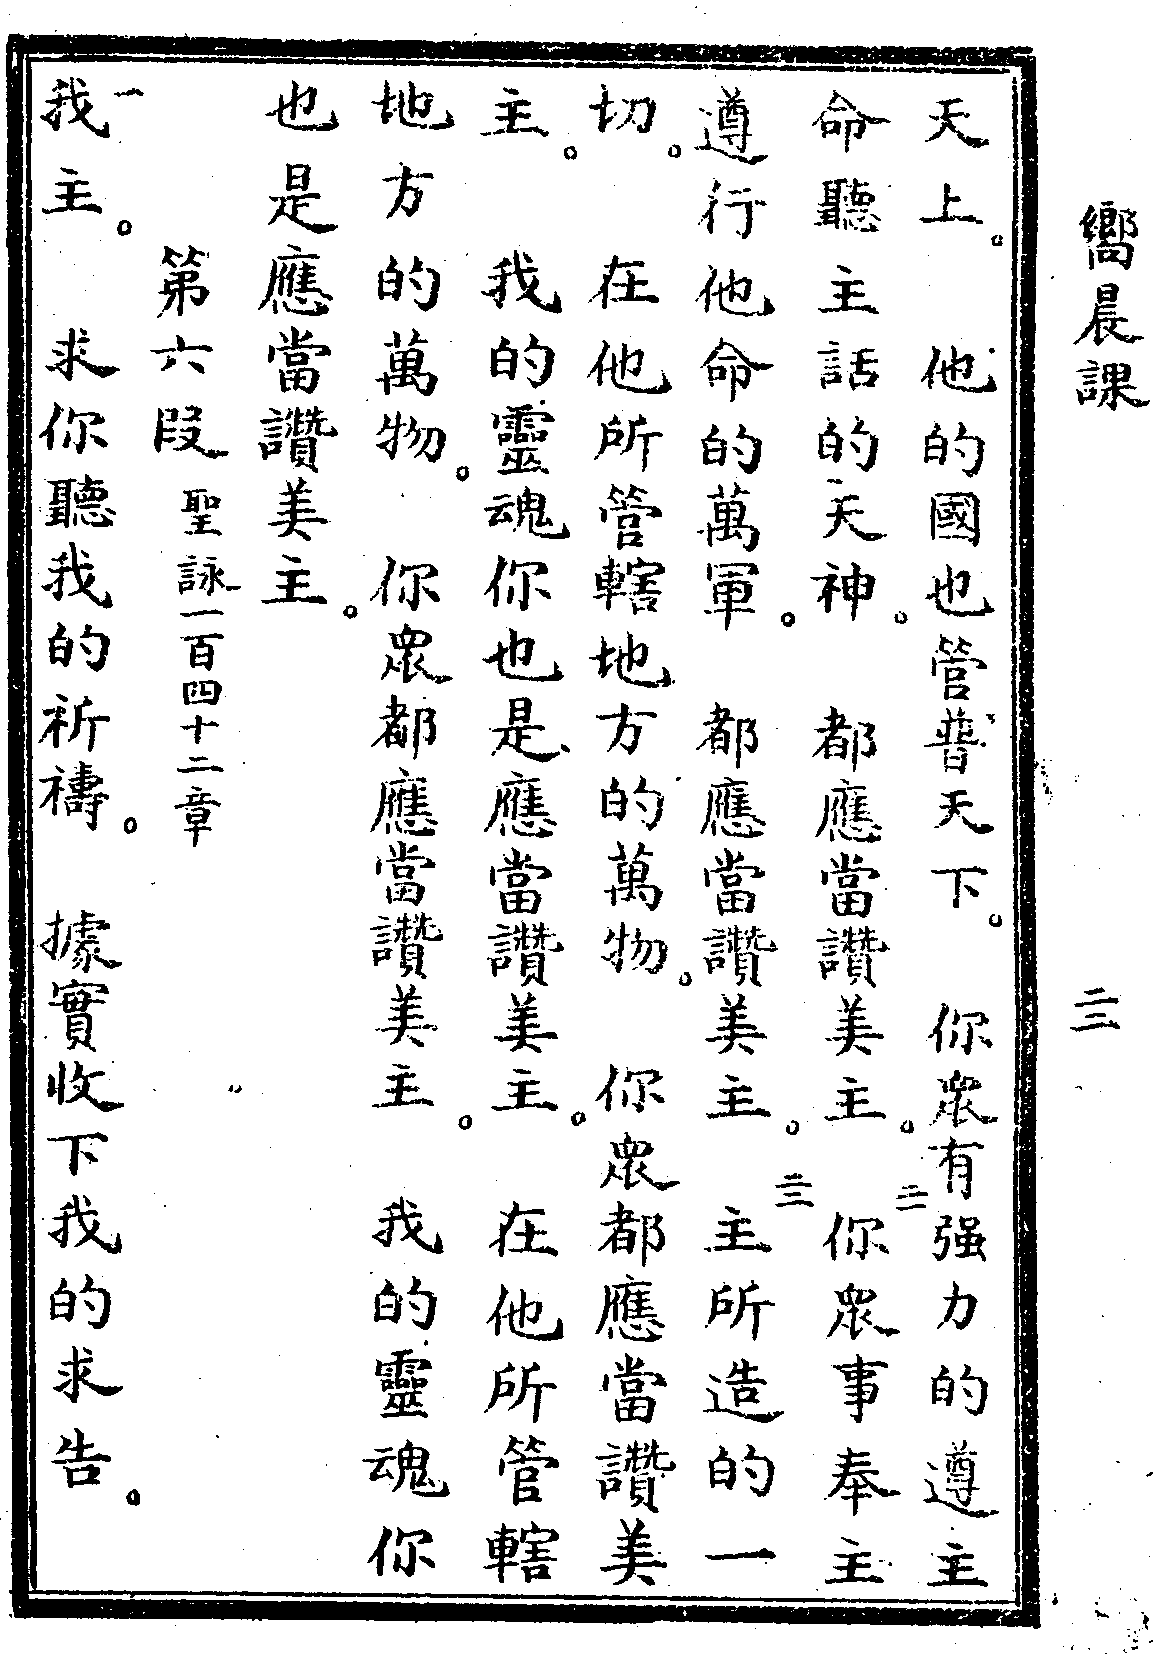 嚮晨課　三
天上。　他的國也管普天下。　你衆有强力的遵主
命聽主話的天神。　都應當讚美主。二　你衆事奉主
遵行他命的萬軍。　都應當讚美主。三　主所造的一
切。　在他所管轄地方的萬物。　你衆都應當讚美
主。　我的靈魂你也是應當讚美主。　在他所管轄
地方的萬物。　你衆都應當讚美主。　我的靈魂你
也是應當讚美主。
第六段　聖詠一百四十二章
一我主。　求你聽我的祈禱。　據實收下我的求告。